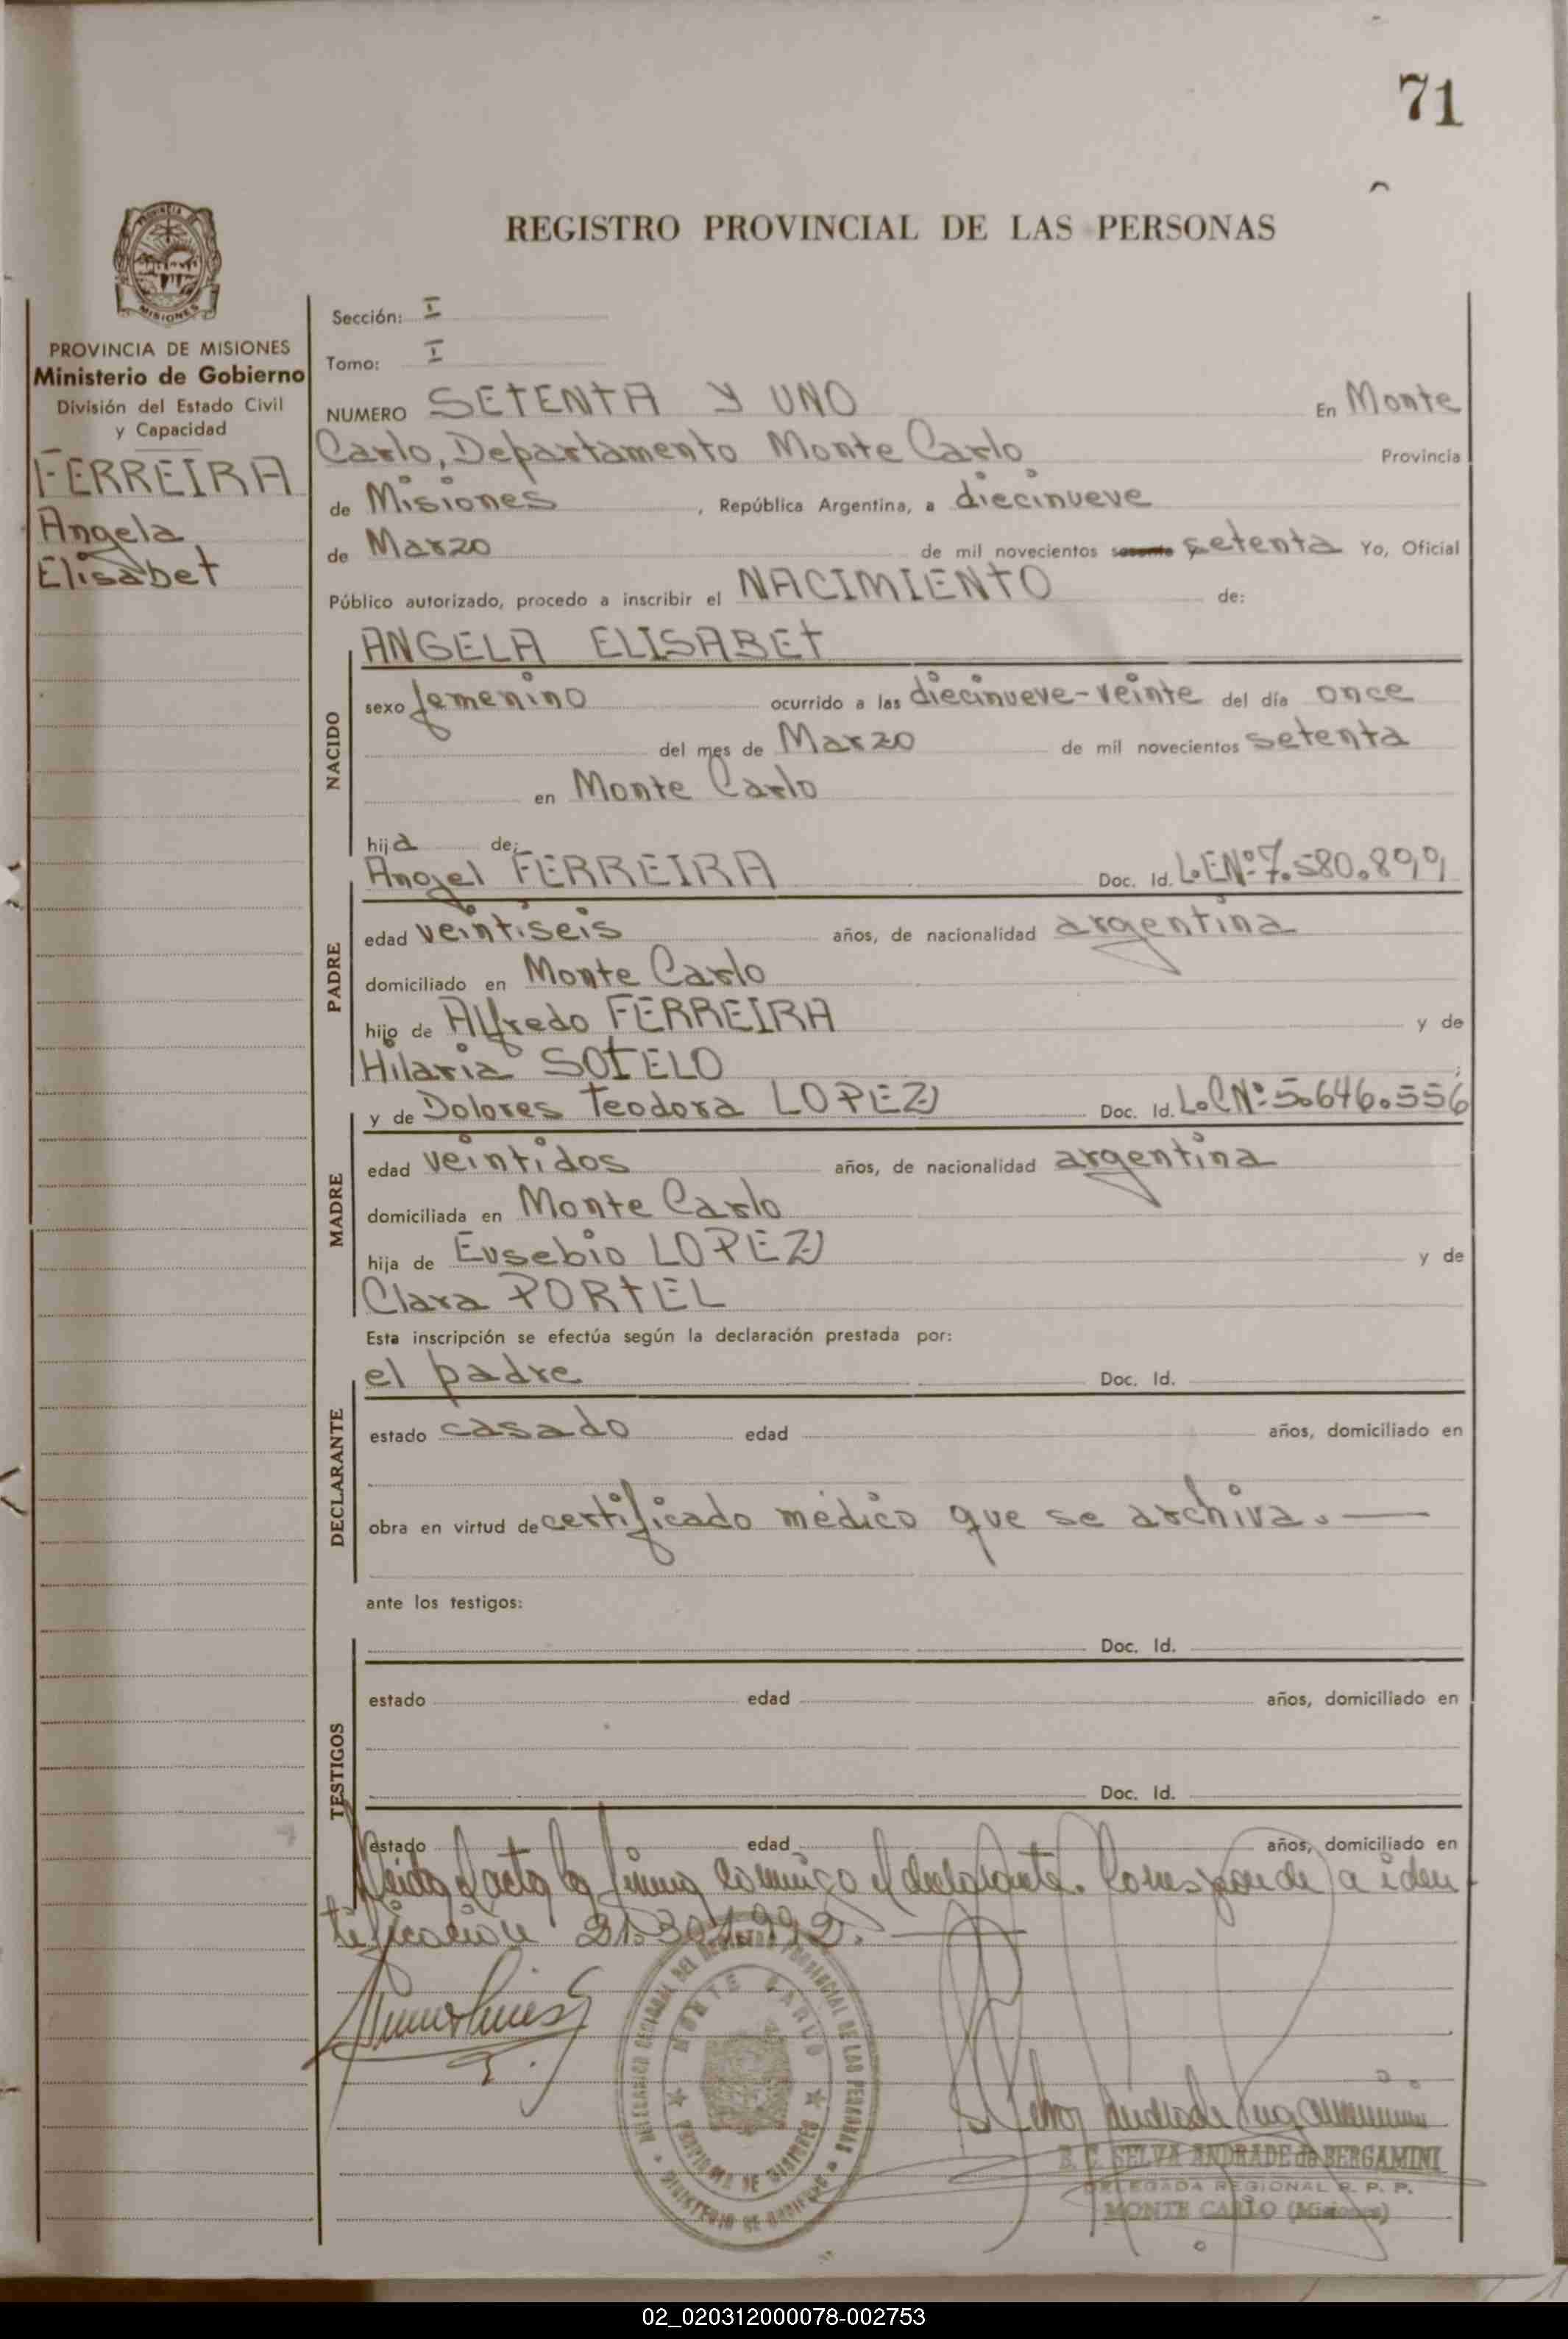 71
REGISTRO PROVINCIAL DE LAS PERSONAS
PROVINCIA DE MISIONES
Ministerio de Gobierno
División del Estado Civil
y Capacidad
FERREIRA
Angela
Elisabet
Sección: I
Tomo: I
NUMERO SETENTA Y UNO En Monte
Carlo, Departamento Monte Carlo Provincia
de Misiones, República Argentina, a diecinueve
de Marzo de mil novecientos setenta Yo, Oficial
Público autorizado, procedo a inscribir el NACIMIENTO de:
NACIDO
ANGELA ELISABET
sexo femenino ocurrido a las diecinueve-veinte del día once
del mes de Marzo de mil novecientos setenta
en Monte Carlo
hija de:
PADRE
Angel FERREIRA Doc. Id. L.E.Nº 7.580.899
edad veintiseis años, de nacionalidad argentina
domiciliado en Monte Carlo
hijo de Alfredo FERREIRA y de
Hilaria SOTELO
MADRE
y de Dolores Teodora LOPEZ Doc. Id. L.C.Nº 5.646.556
edad veintidos años, de nacionalidad argentina
domiciliada en Monte Carlo
hija de Eusebio LOPEZ y de
Clara PORTEL
Esta inscripción se efectúa según la declaración prestada por:
DECLARANTE
el padre Doc. Id.
estado casado edad años, domiciliado en
obra en virtud de certificado médico que se archiva.
ante los testigos:
TESTIGOS
Doc. Id.
estado edad años, domiciliado en
Doc. Id.
estado edad años, domiciliado en
Leida el acta la firma conmigo el declarante. Corresponde a iden
tificación 21.301.992.
MONTE CARLO
PROVINCIA DE MISIONES
MINISTERIO DE GOBIERNO
E. C. SELVA ANDRADE de BERGAMINI
DELEGADA REGIONAL R. P. P.
MONTE CARLO (Misiones)
02_020312000078-002753